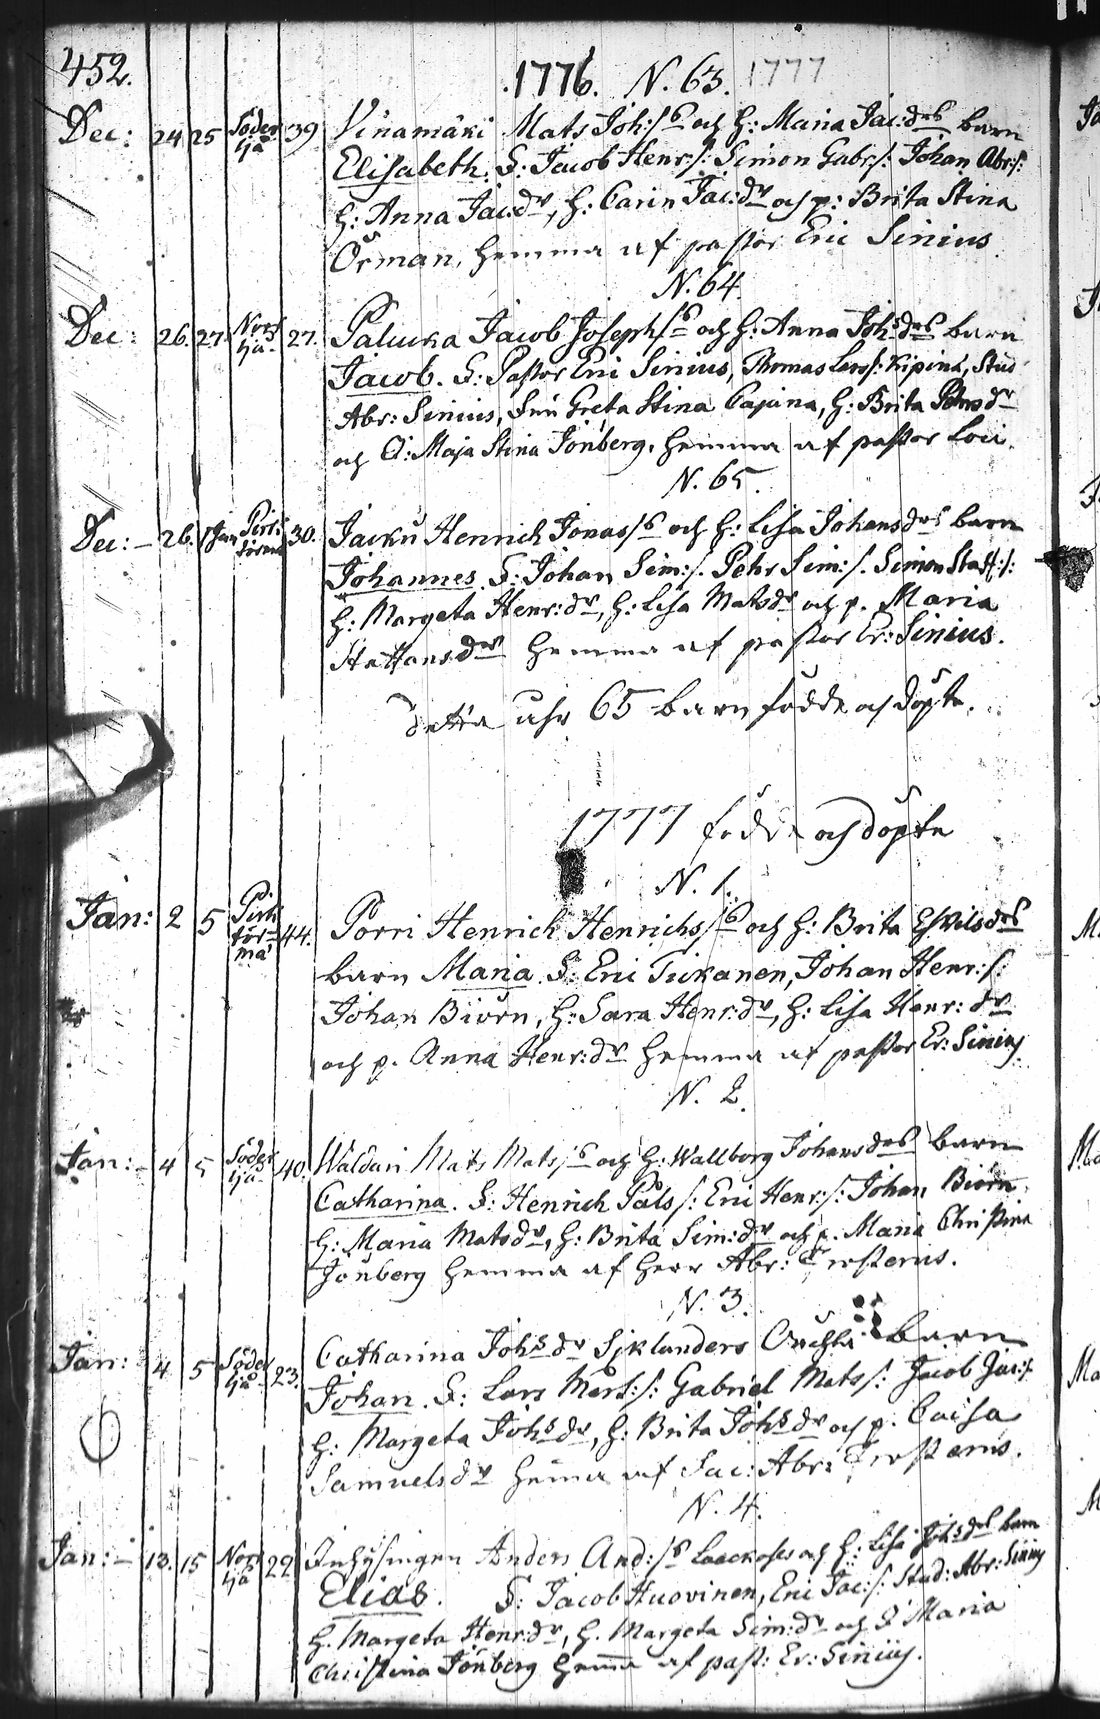 452.
1776. N. 63. 1777
Dec: 24 25 Söder tjä 39 Vinamäki Mats Joh:s och H: Maria Jac:drs barn
Elisabeth. S: Jacob Henr:s: Simon Gabr:s: Johan Abr:s:
H: Anna Jac:dr, H: Carin Jac:dr och p: Brita Stina
Örman, hemma af pastor Eric Sinius
N. 64.
Dec: 26. 27. Norr tjä 27. Jacob Josephs och H: Anna Johsdrs barn
Jacob. S: Pastor Eric Sinius, Thomas Lars: Kipinä, Stud
Abr: Sinius, Greta Stina Cajana, H: Brita dr
och Maja Stina Jönberg, hemma af pastor Loci.
N. 65.
Dec: 26. 1 Jan 30. Henrich Jonas och H: Lisa Johansdrs barn
Johannes. S: Johan Sim:s. Pehr Sim:s. Simon Staff:s:
H: Margeta Henr:dr, H: Lisa Matsdr och p. Maria
Staffansdr hemma af pastor Er: Sinius.
detta åhr 65 barn födde och döpte.
1777 födde och döpte
N. 1.
Jan: 2 5 44. Porri Henrich Henrichs och H: Brita Eskilsdrs
barn Maria. S: Eric Tickanen, Johan Henr:s:
Johan Biörn, H: Sara Henr:dr, H: Lisa Henr:dr
och p. Anna Henr:dr hemma af pastor Er: Sinius
N. 2.
Jan: 4 5 Söder tjä 40. Waldari Mats Mats och H: Wallborg Johansdrs barn
Catharina. S: Henrich Påls: Eric Henr:s: Johan Biörn
H: Maria Matsdr, H: Brita Sim:dr och p. Maria Christina
Jönberg hemma af Herr Abr:
N. 3.
Jan: 4 5 Söder tjä 23. Catharina Johsdr barn
Johan. S: Lars Mårt:s: Gabriel Mats: Jacob Jac:s:
H: Margeta Johsdr, H: Brita Johsdr och p. Caisa
Samuelsdr hemma af Sac: Abr:
N. 4.
Jan: 13. 15 Norr tjä 22 Inhysingen Anders And:s och H: Lisa Johsdrs barn
Elias. S: Jacob Huovinen, Eric Jac:s: Stud: Abr: Sinius
H. Margeta Henr:dr, H. Margeta Sim:dr och Maria
Christina Jönberg hemma af past: Er: Sinius.